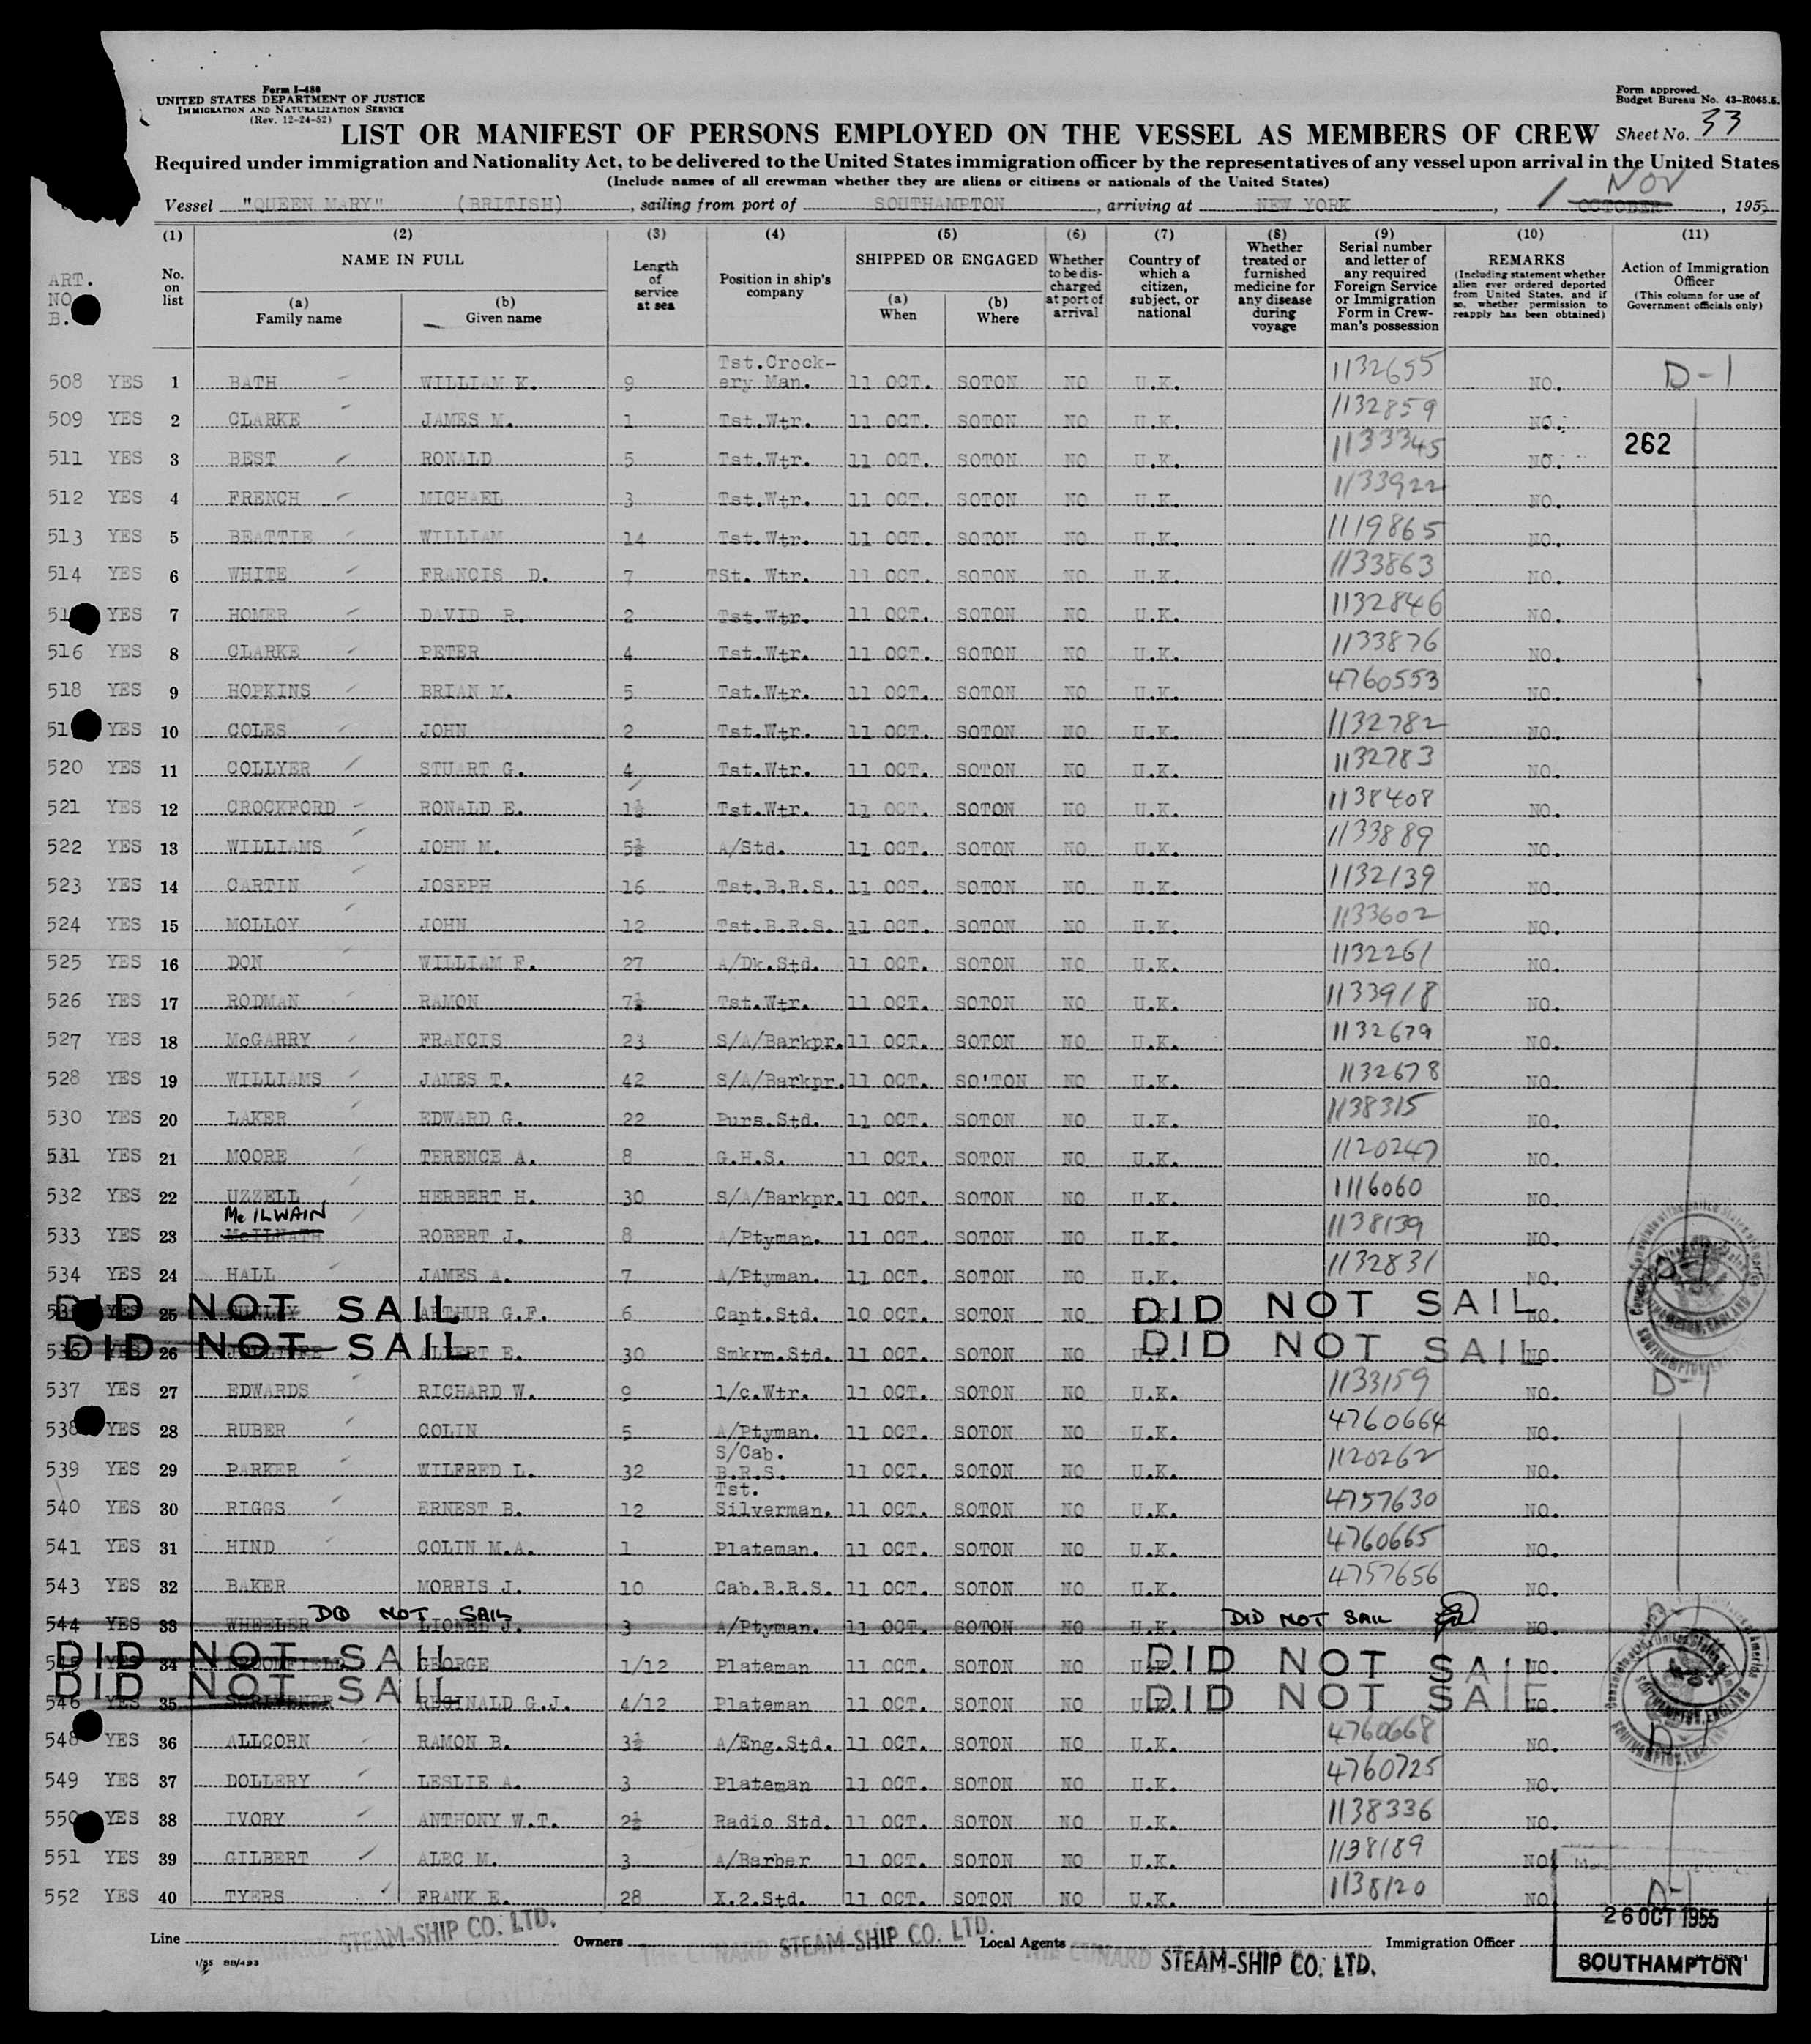 Form I-480
UNITED STATES DEPARTMENT OF JUSTICE
IMMIGRATION AND NATURALIZATION SERVICE
(Rev. 12-24-52)
Form approved.
Budget Bureau No. 43-R065.5.
LIST OR MANIFEST OF PERSONS EMPLOYED ON THE VESSEL AS MEMBERS OF CREW Sheet No. 33
Required under immigration and Nationality Act, to be delivered to the United States immigration officer by the representatives of any vessel upon arrival in the United States
(Include names of all crewman whether they are aliens or citizens or nationals of the United States)
Nov
Vessel "QUEEN MARY" (BRITISH), sailing from port of SOUTHAMPTON, arriving at NEW YORK, 1 OCTOBER, 1955
ART. NO. B.
(1) No. on list
(2) NAME IN FULL (a) Family name (b) Given name
(3) Length of service at sea
(4) Position in ship's company
(5) SHIPPED OR ENGAGED (a) When (b) Where
(6) Whether to be discharged at port of arrival
(7) Country of which a citizen, subject, or national
(8) Whether treated or furnished medicine for any disease during voyage
(9) Serial number and letter of any required Foreign Service or Immigration Form in Crewman's possession
(10) REMARKS (Including statement whether alien ever ordered deported from United States, and if so, whether permission to reapply has been obtained)
(11) Action of Immigration Officer (This column for use of Government officials only)
508 YES 1 BATH WILLIAM K. 9 Tst.Crockery Man. 11 OCT. SOTON NO U.K. 1132655 NO. D-1
509 YES 2 CLARKE JAMES M. 1 Tst.Wtr. 11 OCT. SOTON NO U.K. 1132859 NO.
511 YES 3 BEST RONALD 5 Tst.Wtr. 11 OCT. SOTON NO U.K. 1133345 NO. 262
512 YES 4 FRENCH MICHAEL 3 Tst.Wtr. 11 OCT. SOTON NO U.K. 1133922 NO.
513 YES 5 BEATTIE WILLIAM 14 Tst.Wtr. 11 OCT. SOTON NO U.K. 1119865 NO.
514 YES 6 WHITE FRANCIS D. 7 TSt. Wtr. 11 OCT. SOTON NO U.K. 1133863 NO.
51 YES 7 HOMER DAVID R. 2 Tst.Wtr. 11 OCT. SOTON NO U.K. 1132846 NO.
516 YES 8 CLARKE PETER 4 Tst.Wtr. 11 OCT. SOTON NO U.K. 1133876 NO.
518 YES 9 HOPKINS BRIAN M. 5 Tst.Wtr. 11 OCT. SOTON NO U.K. 4760553 NO.
51 YES 10 COLES JOHN 2 Tst.Wtr. 11 OCT. SOTON NO U.K. 1132782 NO.
520 YES 11 COLLYER STUART G. 4 Tst.Wtr. 11 OCT. SOTON NO U.K. 1132783 NO.
521 YES 12 CROCKFORD RONALD E. 1½ Tst.Wtr. 11 OCT. SOTON NO U.K. 1138408 NO.
522 YES 13 WILLIAMS JOHN M. 5½ A/Std. 11 OCT. SOTON NO U.K. 1133889 NO.
523 YES 14 CARTIN JOSEPH 16 Tst.B.R.S. 11 OCT. SOTON NO U.K. 1132139 NO.
524 YES 15 MOLLOY JOHN 12 Tst.B.R.S. 11 OCT. SOTON NO U.K. 1133602 NO.
525 YES 16 DON WILLIAM F. 27 A/Dk.Std. 11 OCT. SOTON NO U.K. 1132261 NO.
526 YES 17 RODMAN RAMON 7½ Tst.Wtr. 11 OCT. SOTON NO U.K. 1133918 NO.
527 YES 18 McGARRY FRANCIS 23 S/A/Barkpr. 11 OCT. SOTON NO U.K. 1132679 NO.
528 YES 19 WILLIAMS JAMES T. 42 S/A/Barkpr. 11 OCT. SO'TON NO U.K. 1132678 NO.
530 YES 20 LAKER EDWARD G. 22 Purs.Std. 11 OCT. SOTON NO U.K. 1138315 NO.
531 YES 21 MOORE TERENCE A. 8 G.H.S. 11 OCT. SOTON NO U.K. 1120247 NO.
532 YES 22 UZZELL HERBERT H. 30 S/A/Barkpr. 11 OCT. SOTON NO U.K. 1116060 NO.
Mc ILWAIN
533 YES 23 McILNATH ROBERT J. 8 A/Ptyman. 11 OCT. SOTON NO U.K. 1138139 NO.
534 YES 24 HALL JAMES A. 7 A/Ptyman. 11 OCT. SOTON NO U.K. 1132831 NO.
DID NOT SAIL YES 25 ARTHUR G.F. 6 Capt.Std. 10 OCT. SOTON NO DID NOT SAIL NO.
DID NOT SAIL 536 YES 26 ALBERT E. 30 Smkrm.Std. 11 OCT. SOTON NO U.K. DID NOT SAIL NO.
537 YES 27 EDWARDS RICHARD W. 9 1/c.Wtr. 11 OCT. SOTON NO U.K. 1133159 NO. D-1
538 YES 28 RUBER COLIN 5 A/Ptyman. 11 OCT. SOTON NO U.K. 4760664 NO.
539 YES 29 PARKER WILFRED L. 32 S/Cab. B.R.S. 11 OCT. SOTON NO U.K. 1120262 NO.
540 YES 30 RIGGS ERNEST B. 12 Tst. Silverman. 11 OCT. SOTON NO U.K. 4757630 NO.
541 YES 31 HIND COLIN M.A. 1 Plateman. 11 OCT. SOTON NO U.K. 4760665 NO.
543 YES 32 BAKER MORRIS J. 10 Cab.B.R.S. 11 OCT. SOTON NO U.K. 4757656 NO.
544 YES 33 WHEELER DID NOT SAIL LIONEL J. 3 A/Ptyman. 11 OCT. SOTON NO U.K. DID NOT SAIL NO.
DID NOT SAIL 34 GEORGE 1/12 Plateman 11 OCT. SOTON NO U.K. DID NOT SAIL NO.
DID NOT SAIL 546 YES 35 REGINALD G.J. 4/12 Plateman 11 OCT. SOTON NO U.K. DID NOT SAIL NO.
548 YES 36 ALLCORN RAMON B. 3½ A/Eng.Std. 11 OCT. SOTON NO U.K. 4760668 NO. D-1
549 YES 37 DOLLERY LESLIE A. 3 Plateman 11 OCT. SOTON NO U.K. 4760725 NO.
550 YES 38 IVORY ANTHONY W.T. 2½ Radio Std. 11 OCT. SOTON NO U.K. 1138336 NO.
551 YES 39 GILBERT ALEC M. 3 A/Barber 11 OCT. SOTON NO U.K. 1138189 NO.
552 YES 40 TYERS FRANK E. 28 X.2.Std. 11 OCT. SOTON NO U.K. 1138120 NO D-1
26 OCT 1955
Line CUNARD STEAM-SHIP CO. LTD. Owners THE CUNARD STEAM-SHIP CO. LTD. Local Agents THE CUNARD STEAM-SHIP CO. LTD. Immigration Officer
SOUTHAMPTON